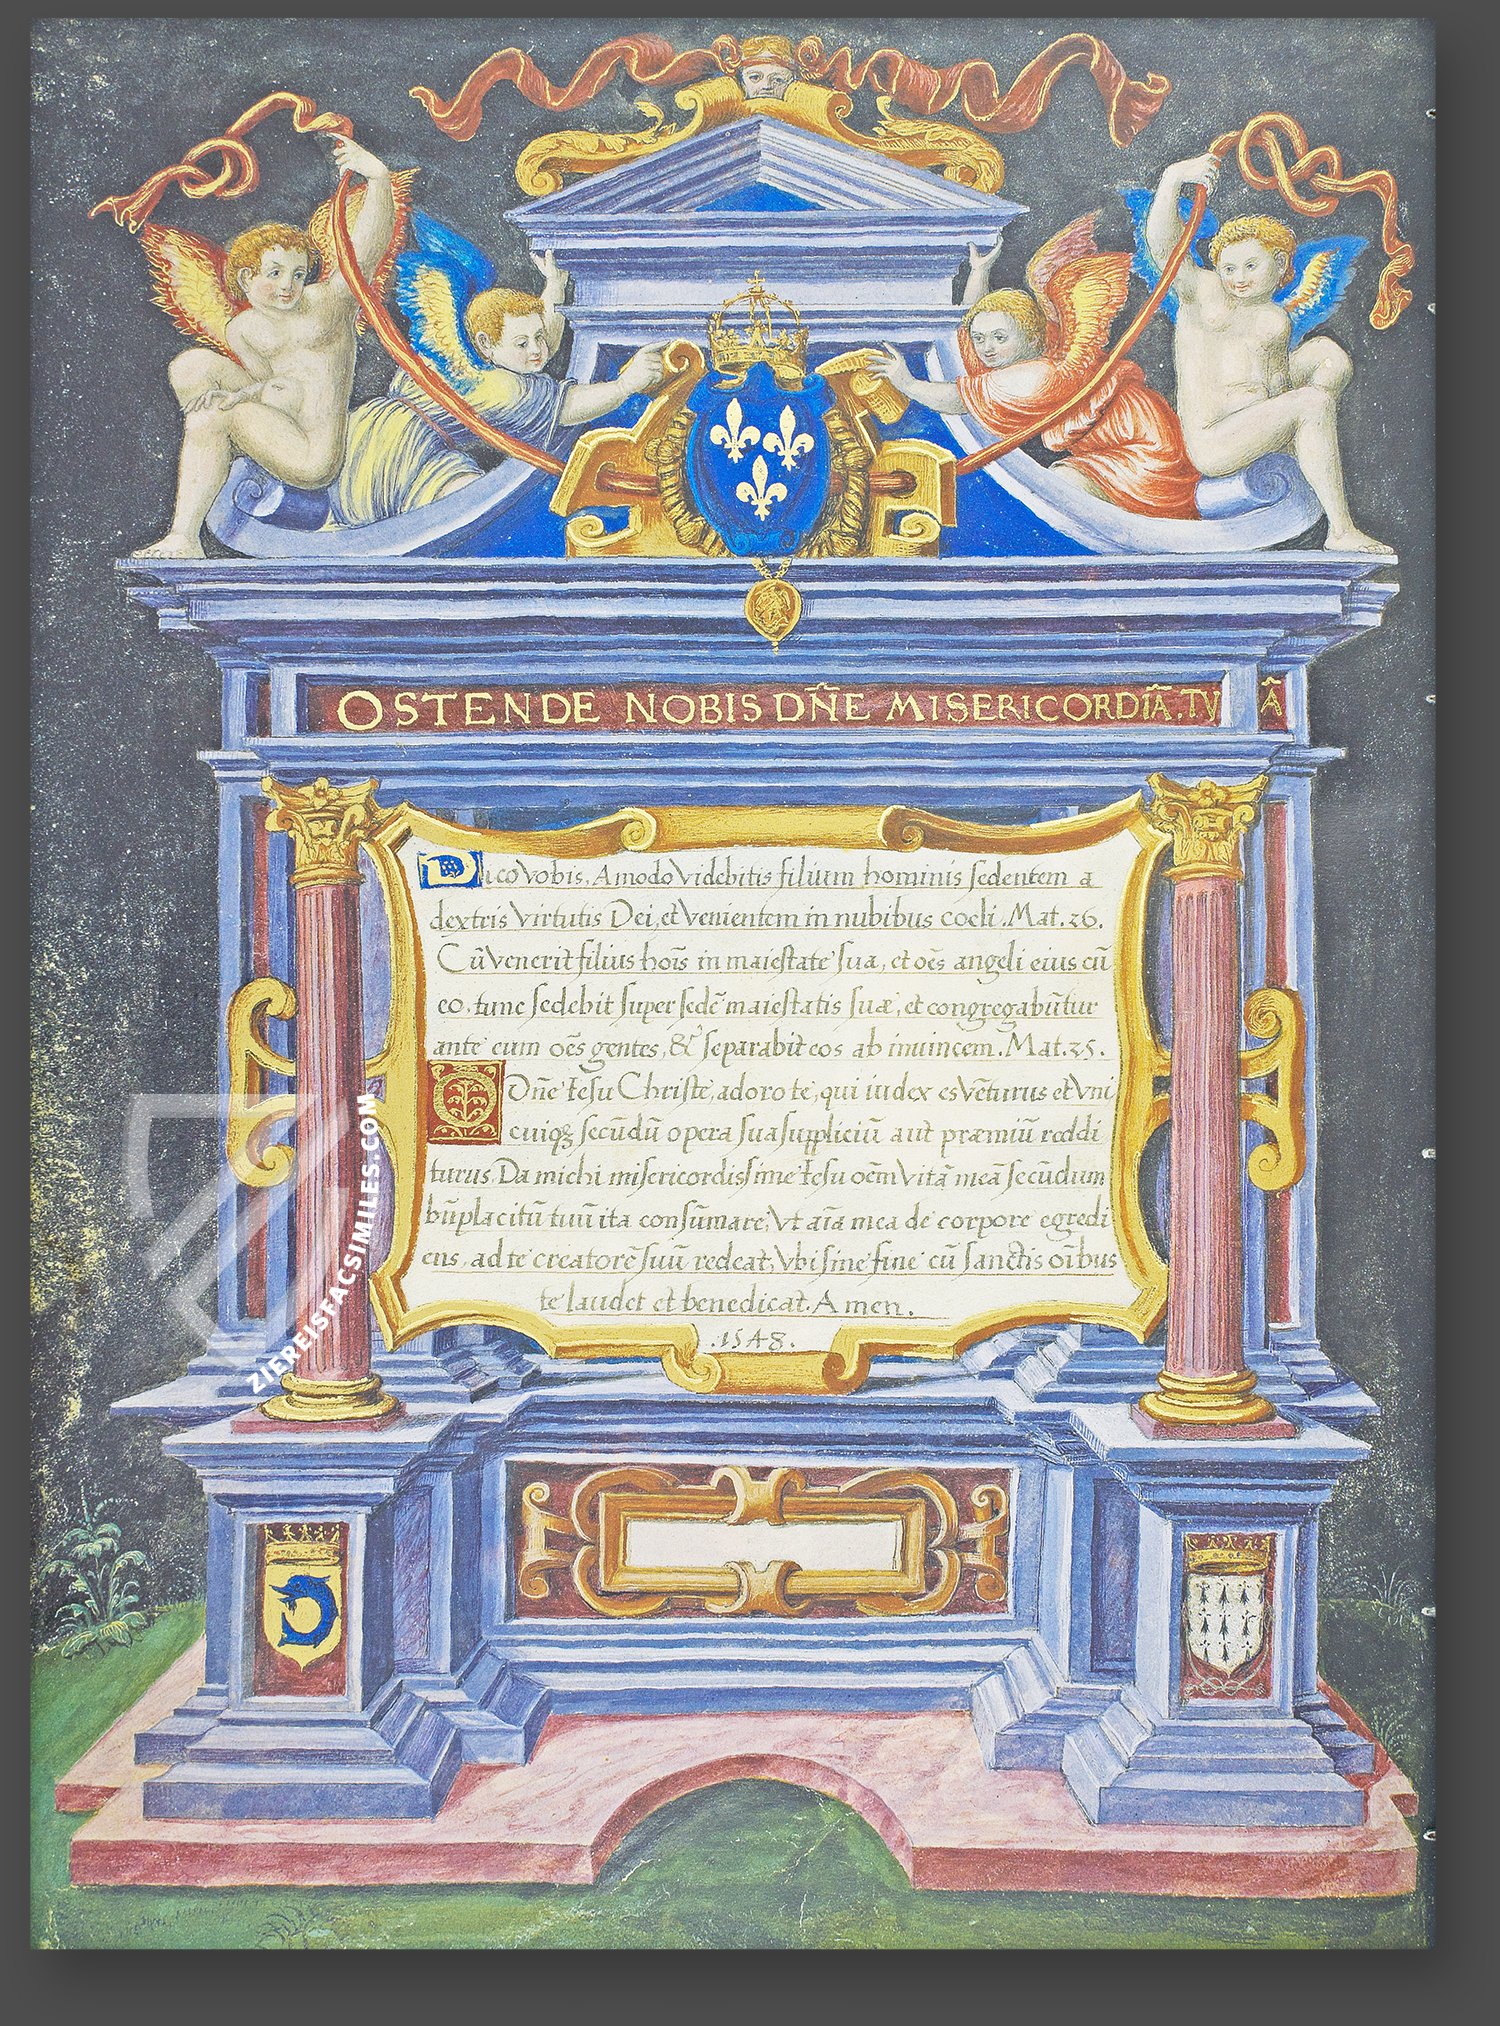 OSTENDE NOBIS DÑE MISERICORDIÃ. TVÃ
Dico vobis, Amodo Videbitis filium hominis ſedentem a
dextris Virtutis Dei, et Venientem in nubibus coeli. Mat. 26.
Cũ Venerit filius hoĩs in maieſtate ſua, et oẽs angeli eius cũ
eo. tunc ſedebit ſuper ſedẽ maieſtatis ſuæ, et congregabũtur
ante eum oẽs gentes, & ſeparabit eos ab inuincem. Mat. 25.
Dñe Ieſu Chriſte, adoro te, qui iudex es Vẽturus et Vni
cuiqꝫ ſecũdũ opera ſua ſuppliciũ aut præmiũ reddi
turus. Da michi miſericordiſſime Ieſu oẽm Vitã meã ſecũdum
bñplacitũ tuũ ita conſũmare, Vt aĩa mea de corpore egredi
ens, ad te creatorẽ ſuũ redeat, Vbi ſine fine cũ ſanctis oĩbus
te laudet et benedicat. Amen.
.1548.
ZIEREISFACSIMILES.COM